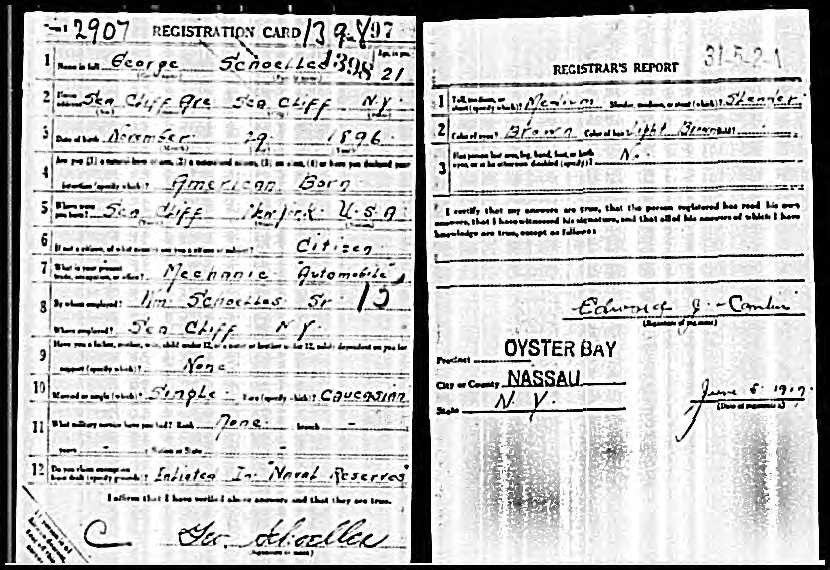 2907 REGISTRATION CARD 139-897
1 Name in full George Schoelles 1398 Age, in yrs. 21
2 Home address Sea Cliff Ave Sea Cliff N.Y.
3 Date of birth November 29 1896
Are you (1) a natural born (2) a naturalized (3) (4) or have you declared your
4 intention (specify which)? American Born
5 Where were you born? Sea Cliff New York U.S.A
6 If not a citizen, of what are you a citizen or subject? Citizen
7 What is your present trade, occupation, or office? Mechanic "Automobile"
8 By whom employed? Wm. Schoelles Sr. 15
Where employed? Sea Cliff N Y.
9 Have you a father, mother, wife, child under 12, or a sister or brother under 12, solely dependent on you for
support (specify which)? None
10 Married or single (which)? Single Race (specify which)? Caucasian
11 What military service have you had? Rank None branch -
years - Nation or State -
12 Do you claim exemption from draft (specify grounds)? In "Naval Reserves"
I affirm that I have verified above answers and that they are true.
C Geo. Schoelles
(Signature or mark)
REGISTRAR'S REPORT 31-5-2-1
1 Tall, medium, or short (specify which)? Medium Slender, medium, or stout (which)? Slender
2 Color of eyes? Brown Color of hair? Light Brown Bald?
3 Has person lost arm, leg, hand, foot, or both eyes, or is he otherwise disabled (specify)? No.
I certify that my answers are true, that the person registered has read his own
answers, that I have witnessed his signature, and that all of his answers of which I have
knowledge are true, except as follows:
Edward J.
(Signature of registrar)
Precinct OYSTER BAY
City or County NASSAU
State N. Y. June 5. 1917.
(Date of registration)